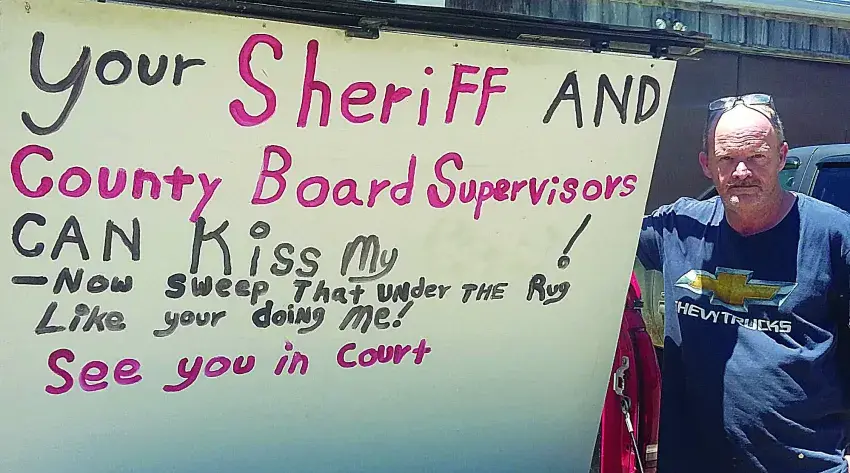 Your Sheriff AND
County Board Supervisors
CAN Kiss My !
- Now sweep That under THE Rug
Like your doing Me!
See you in Court
HEVY TRUCKS